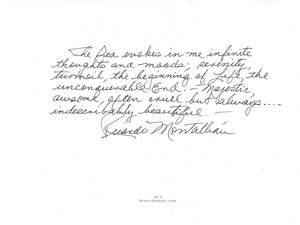 The Sea evokes in me infinite
thoughts and moods; serenity,
turmoil, the beginning of Life, the
unconquerable End. – Majestic,
awsome, often cruel but always....
indescribably beautiful. –
Ricardo Montalbán